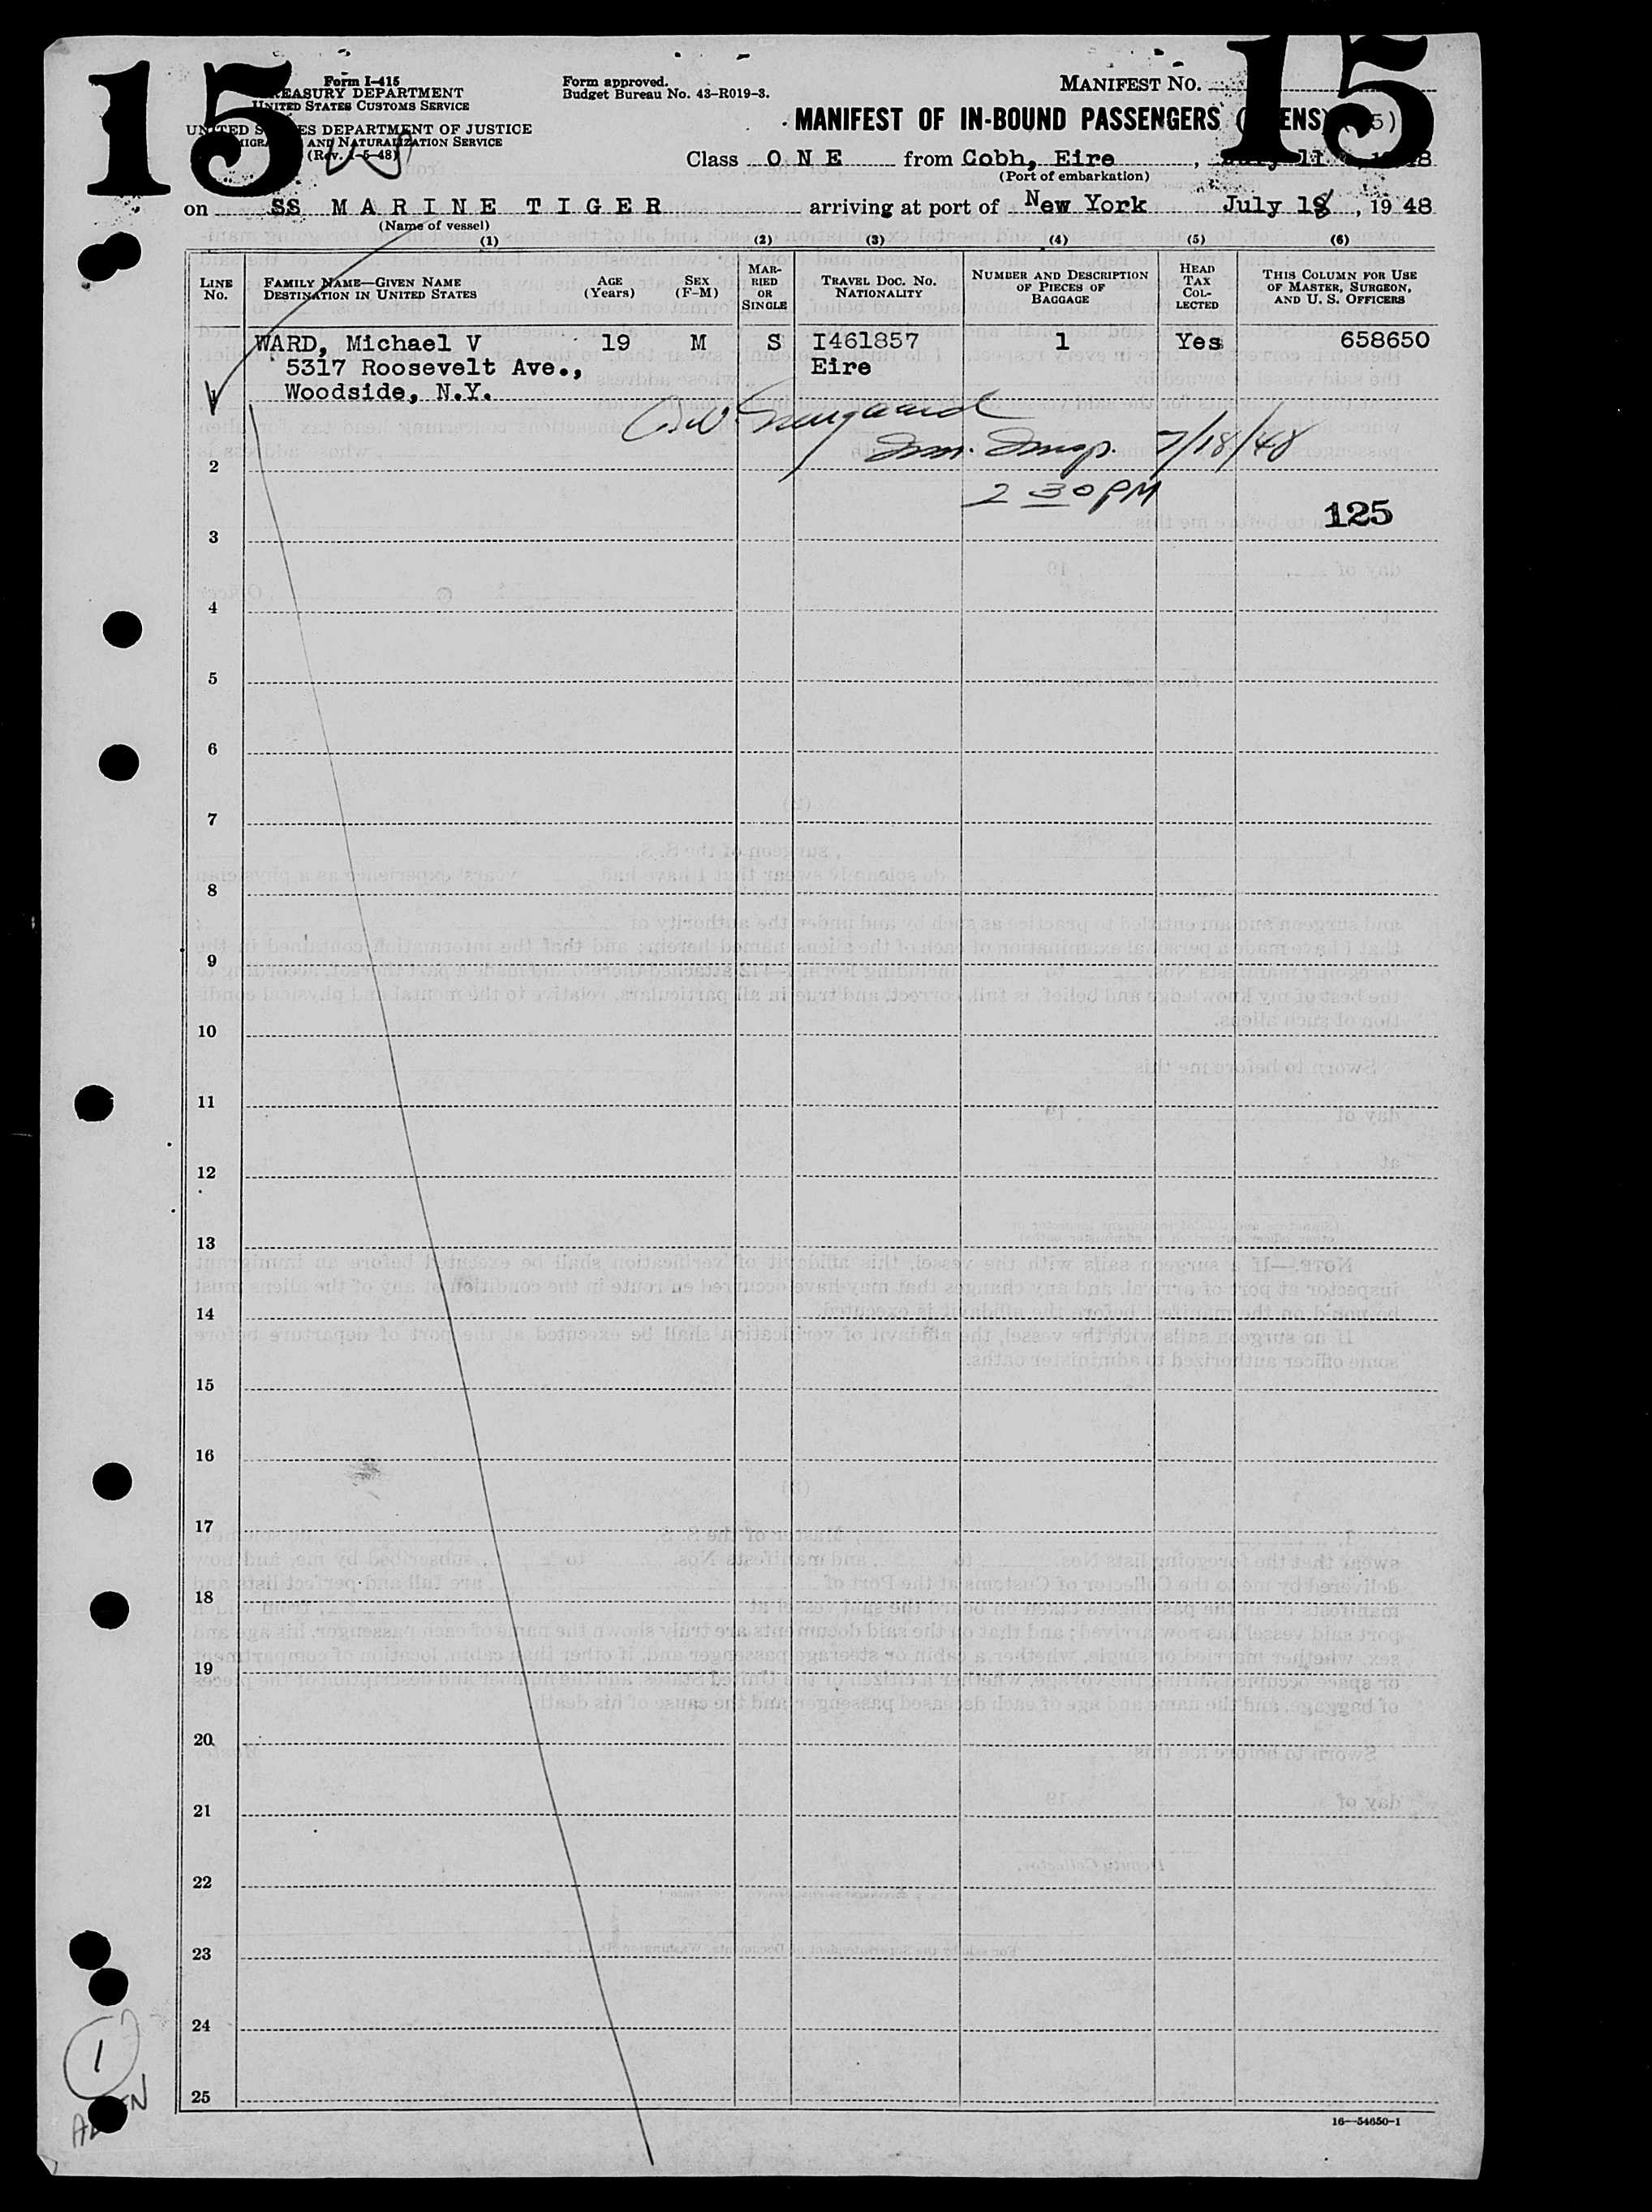 15
15
Form I-415
TREASURY DEPARTMENT
UNITED STATES CUSTOMS SERVICE
UNITED STATES DEPARTMENT OF JUSTICE
IMMIGRATION AND NATURALIZATION SERVICE
(Rev. 1-5-48)
Form approved.
Budget Bureau No. 43-R019-3.
MANIFEST NO.
MANIFEST OF IN-BOUND PASSENGERS (ALIENS) (15)
Class ONE from Cobh, Eire, July 11, 1948
(Port of embarkation)
on SS MARINE TIGER arriving at port of New York July 18, 1948
(Name of vessel)
(1) (2) (3) (4) (5) (6)
LINE No.
FAMILY NAME—GIVEN NAME
DESTINATION IN UNITED STATES
AGE (Years)
SEX (F-M)
MARRIED OR SINGLE
TRAVEL DOC. NO. NATIONALITY
NUMBER AND DESCRIPTION OF PIECES OF BAGGAGE
HEAD TAX COLLECTED
THIS COLUMN FOR USE OF MASTER, SURGEON, AND U. S. OFFICERS
WARD, Michael V 19 M S I461857 1 Yes 658650
5317 Roosevelt Ave., Eire
1 Woodside, N.Y.
Imm. Insp. 7/18/48
2
2 30 PM
125
3
4
5
6
7
8
9
10
11
12
13
14
15
16
17
18
19
20
21
22
23
24
25
1
ALIEN
16—54650-1